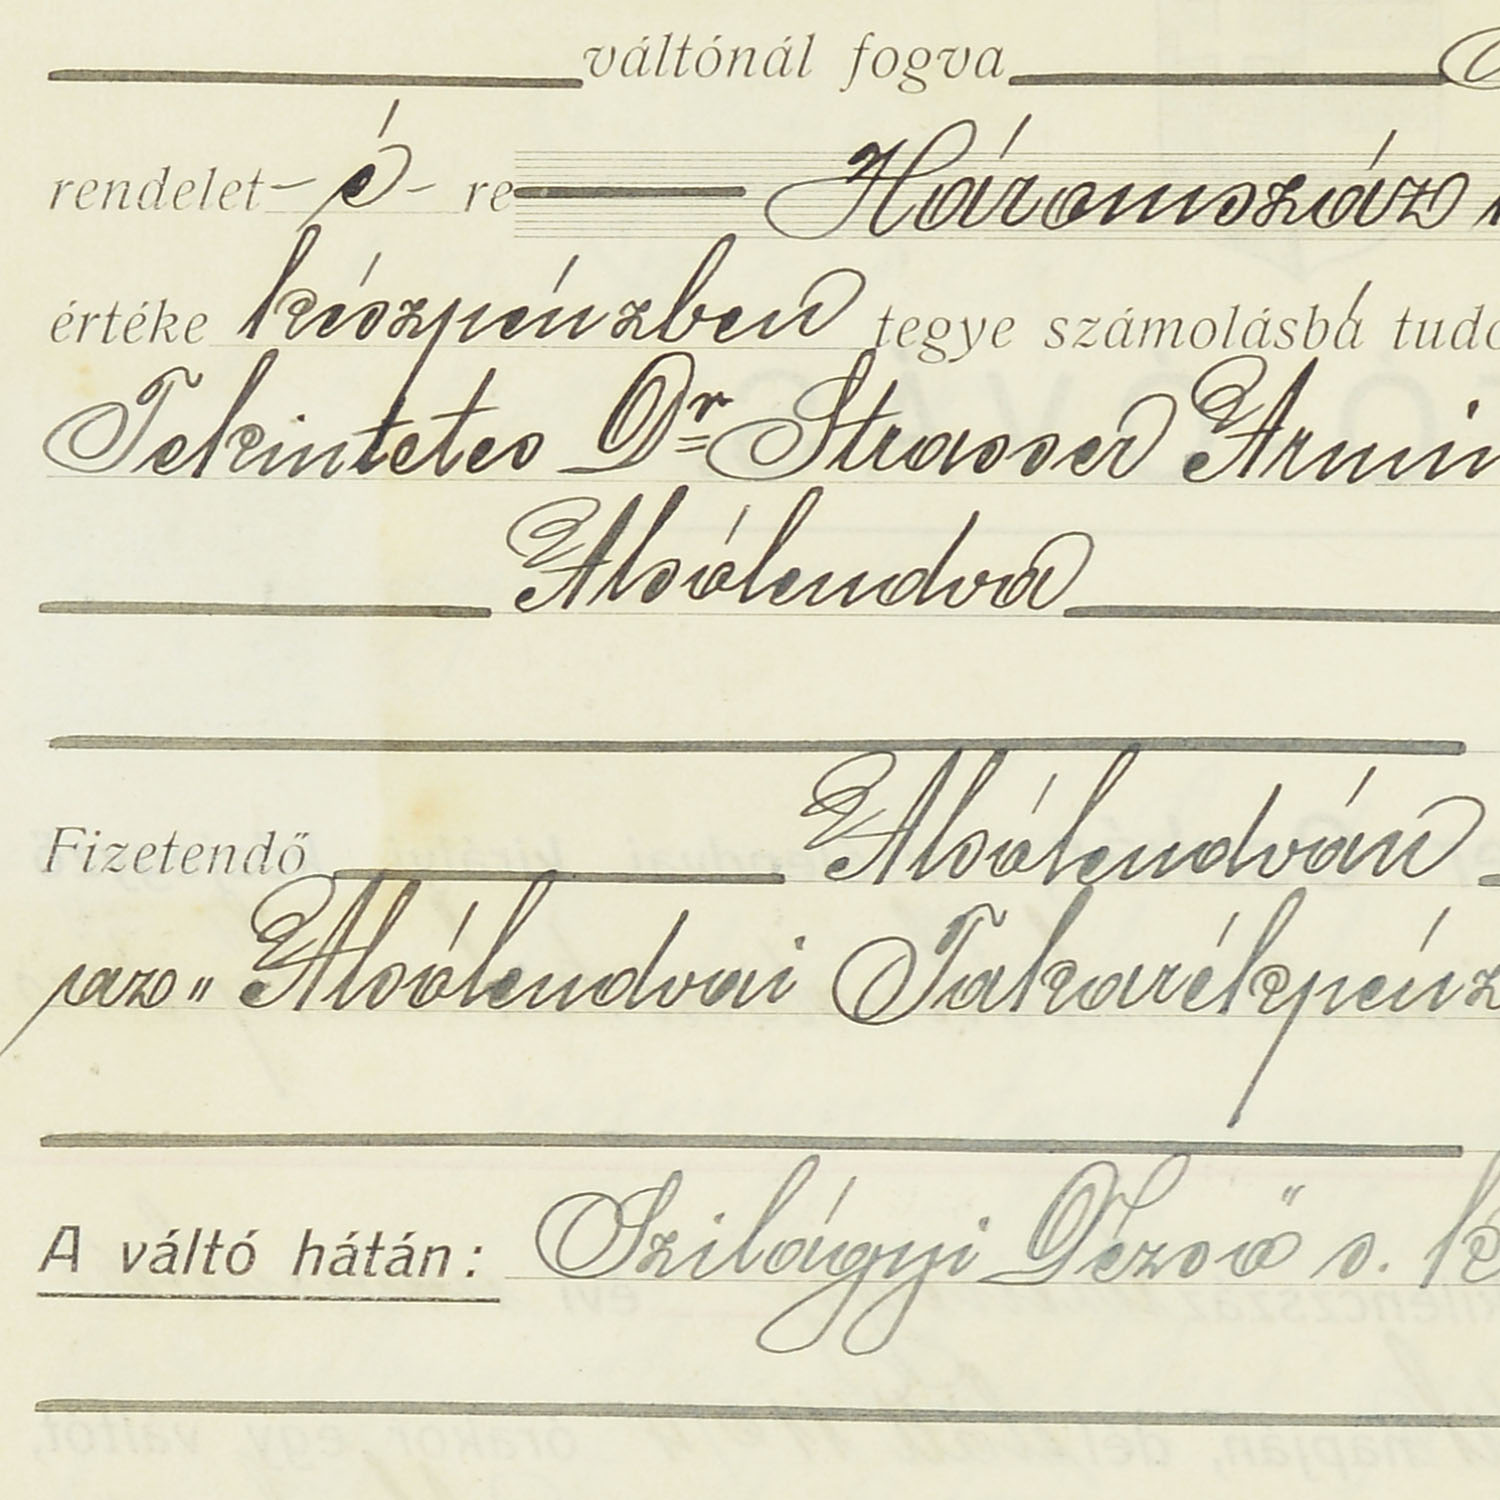 váltónál fogva
rendelet-é- re Háromszáz
értéke készpénzben tegye számolásbá
Tekintetes Dr Strasser Ármin
Alsólendva
Fizetendő Alsólendván
az „ Alsólendvai Takarékpénz
A váltó hátán: Szilágyi Dezső s. k